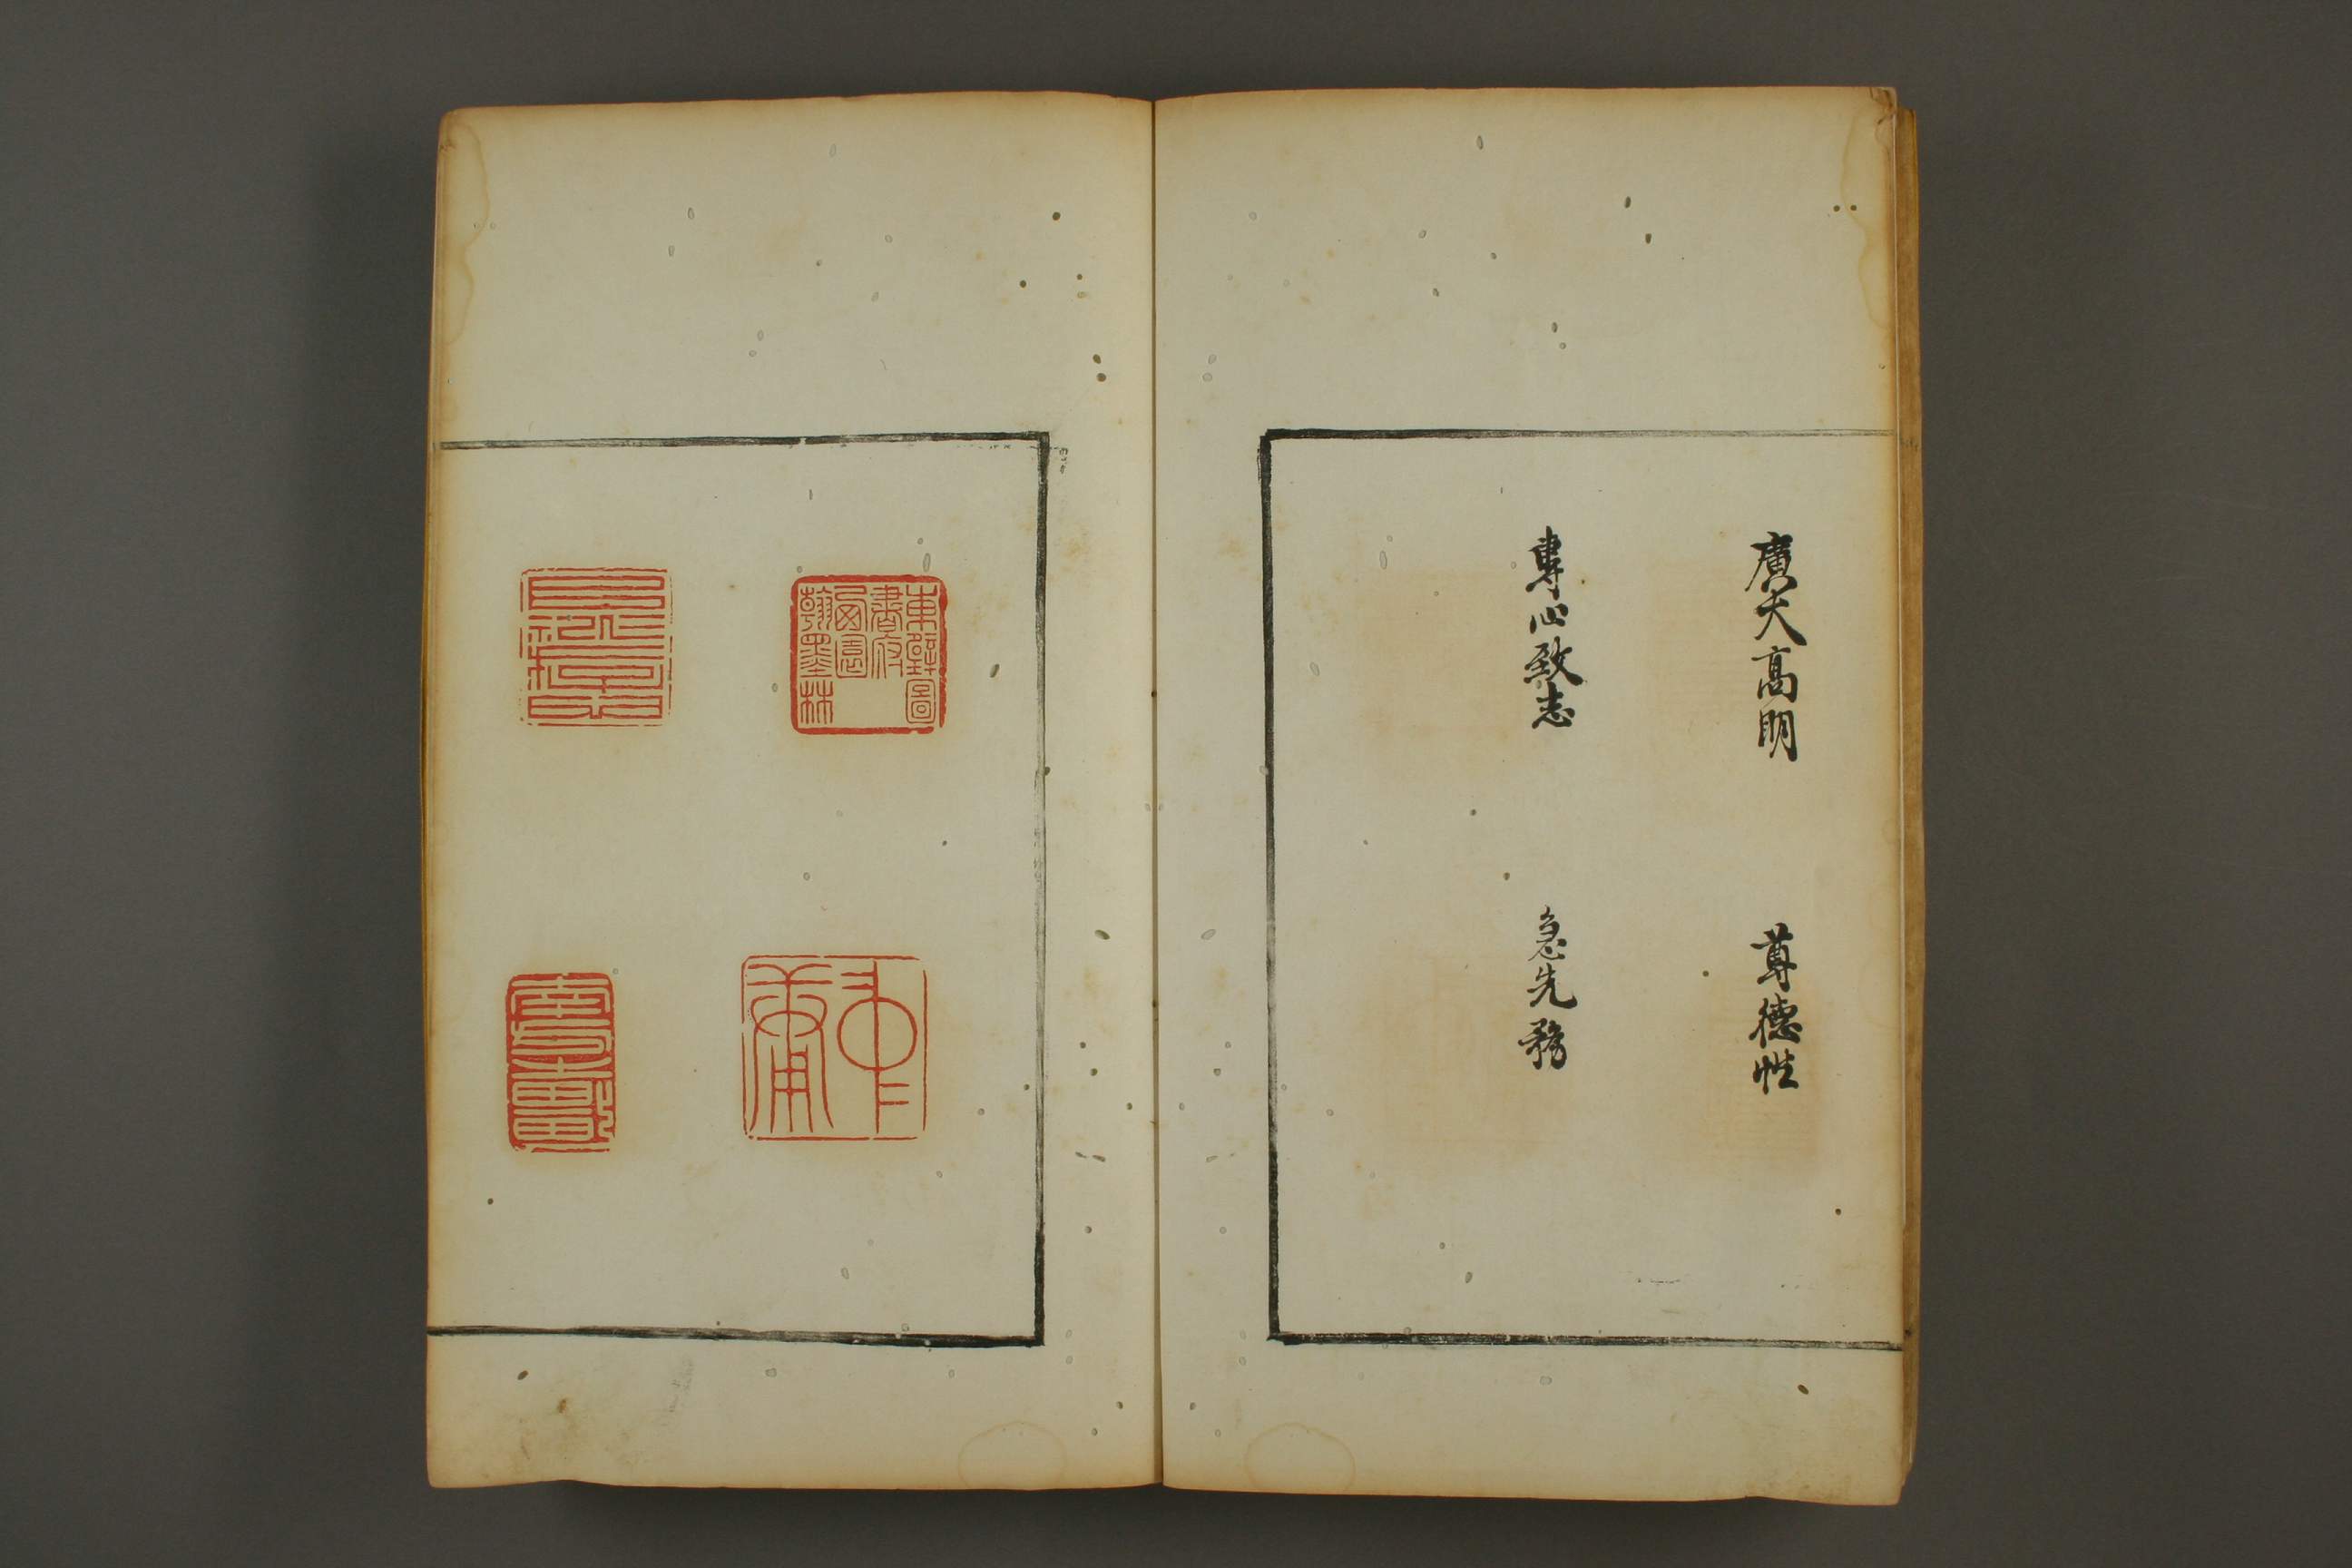 廣大高明
尊德性
專心致志
急先務
東壁圖
書府
西園
翰墨林